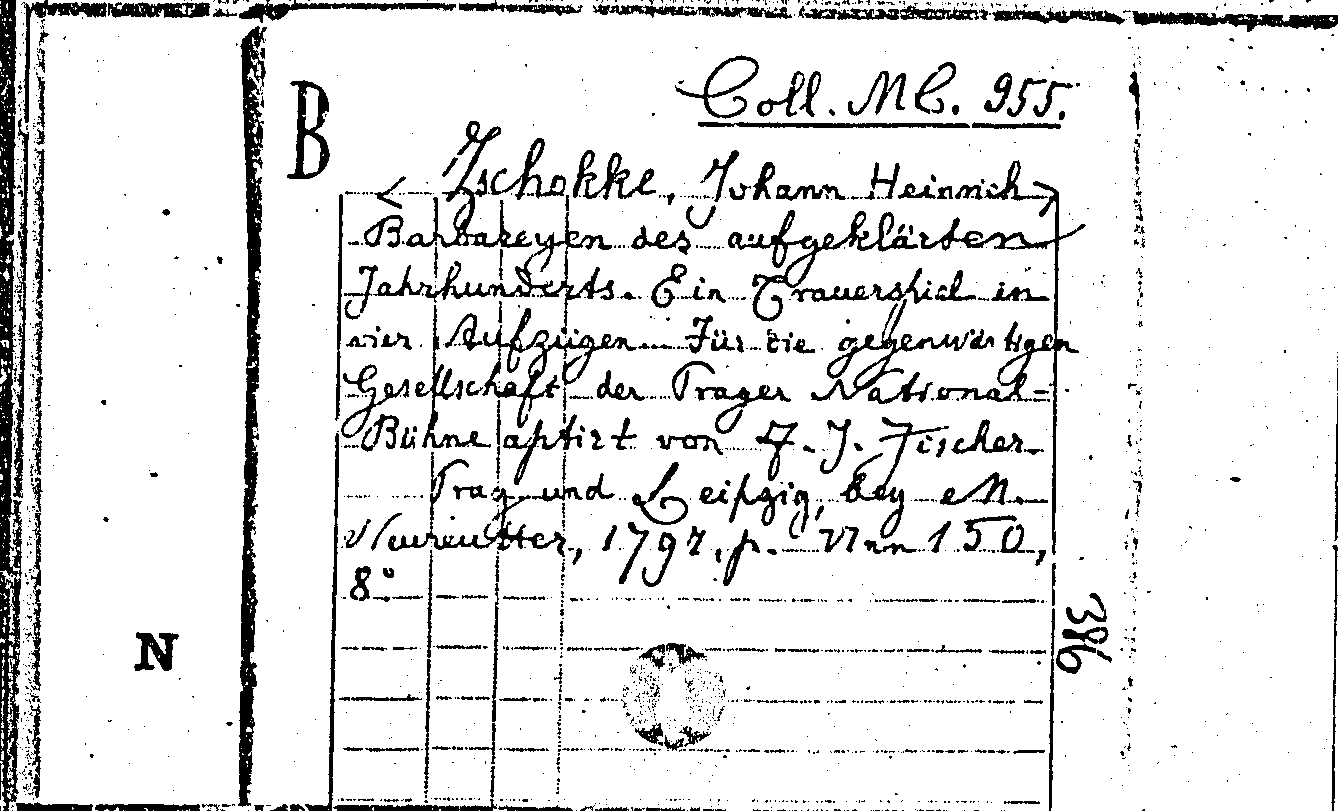 B
Coll. M C. 955.
< Zschokke, Johann Heinrich>
Barbareyen des aufgeklärten
Jahrhunderts. Ein Trauerspiel in
vier Aufzügen. Für die gegenwärtigen
Gesellschaft der Prager National-
Bühne aptirt von F. J. Fischer.
Prag und Leipzig, bey M.
Neureutter, 1797, p. 150,
8°
386
N